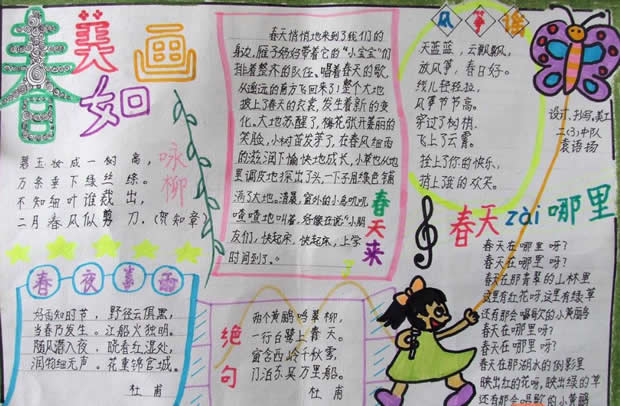 春美如画
咏柳
碧玉妆成一树高,
万条垂下绿丝绦。
不知细叶谁裁出,
二月春风似剪刀。(贺知章)
春夜喜雨
好雨知时节,野径云俱黑,
当春乃发生。江船火独明。
随风潜入夜,晓看红湿处,
润物细无声。花重锦官城。
杜甫
春天来了
春天悄悄地来到了我们的
身边,雁子妈妈带着它的“小宝宝”们
排着整齐的队伍、唱着春天的歌,
从遥远的南方飞回来了!整个大地
披上了春天的衣裳,发生着新的变
化。大地苏醒了,梅花张开美丽的
笑脸,小树苗发芽了,在春风细雨
的滋润下愉快地成长,小草也从地
里调皮地探出了头,一下子用绿色铺
满了大地。清晨,窗外的小鸟叽叽
喳喳地叫着,好像在说“小朋
友们,快起床,快起床,上学
时间到了。”
绝句
两个黄鹂鸣翠柳,
一行白鹭上青天。
窗含西岭千秋雪,
门泊东吴万里船。
杜甫
风筝谣
天蓝蓝,云飘飘,
放风筝,春日好。
线儿轻轻拉,
风筝节节高。
穿过了树梢,
飞上了云霄。
拴上了你的快乐,
捎上我的欢天。
设计、抄写、美工
二(3)中队
袁语扬
春天zài哪里
春天在哪里呀?
春天在哪里呀?
春天在那青翠的山林里
这里有红花呀,这里有绿草
还有那会唱歌的小黄鹂
春天在哪里呀?
春天在哪里呀?
春天在那湖水的倒影里
映出红的花呀,映出绿的草
还有那会唱歌的小黄鹂